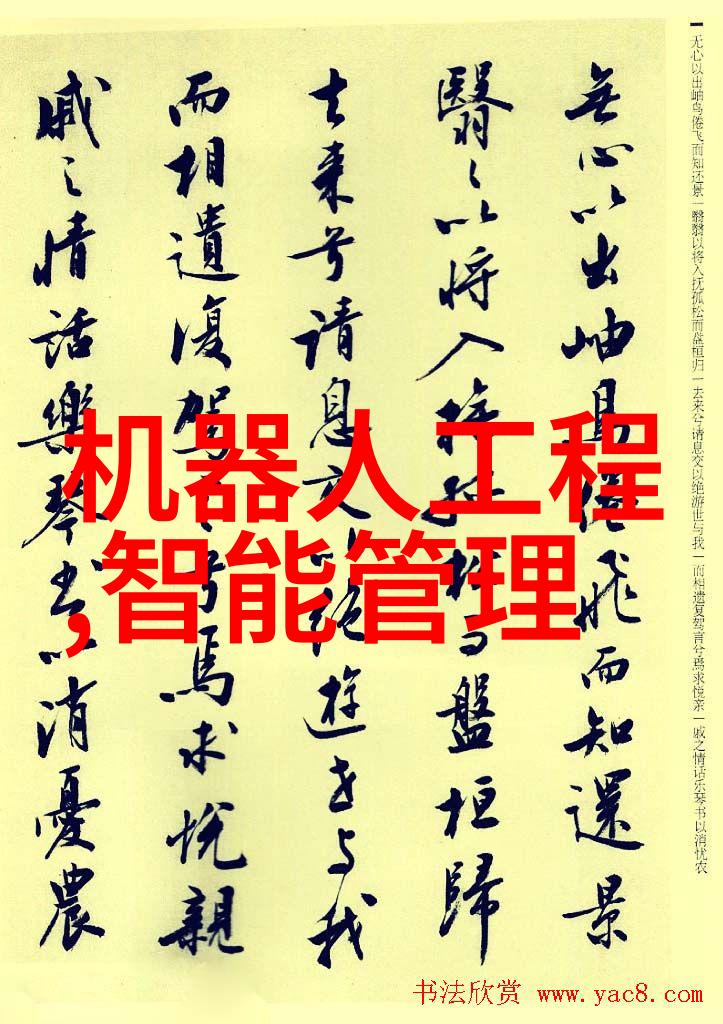 无心以出岫鸟倦飞而知还景一翳翳以将入抚孤松而盘桓归一去来兮请息交以绝游世与我一而相遗复驾言兮焉求悦亲一戚之情话乐琴书以消忧农
無心以出岫鳥倦飛而知還景
翳々以将入撫孤松而盤桓歸
去来兮请息交以絶遊世与我
而相遺復駕言兮焉求悦親
戚之情話樂琴書以消憂農
机器人工程
,智能管理
书法欣赏 www.yac8.com